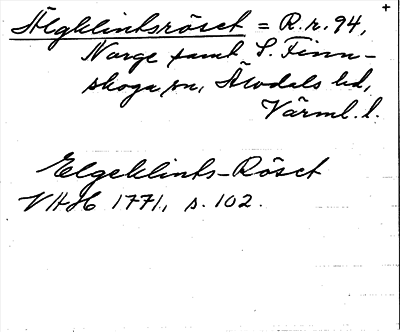 +
Älgklintsröset = R.r. 94,
Norge samt S. Finn-
skoga sn, Älvdals hd,
Värml. l.
Elgeklints-Röset
VHH 1771, s. 102.